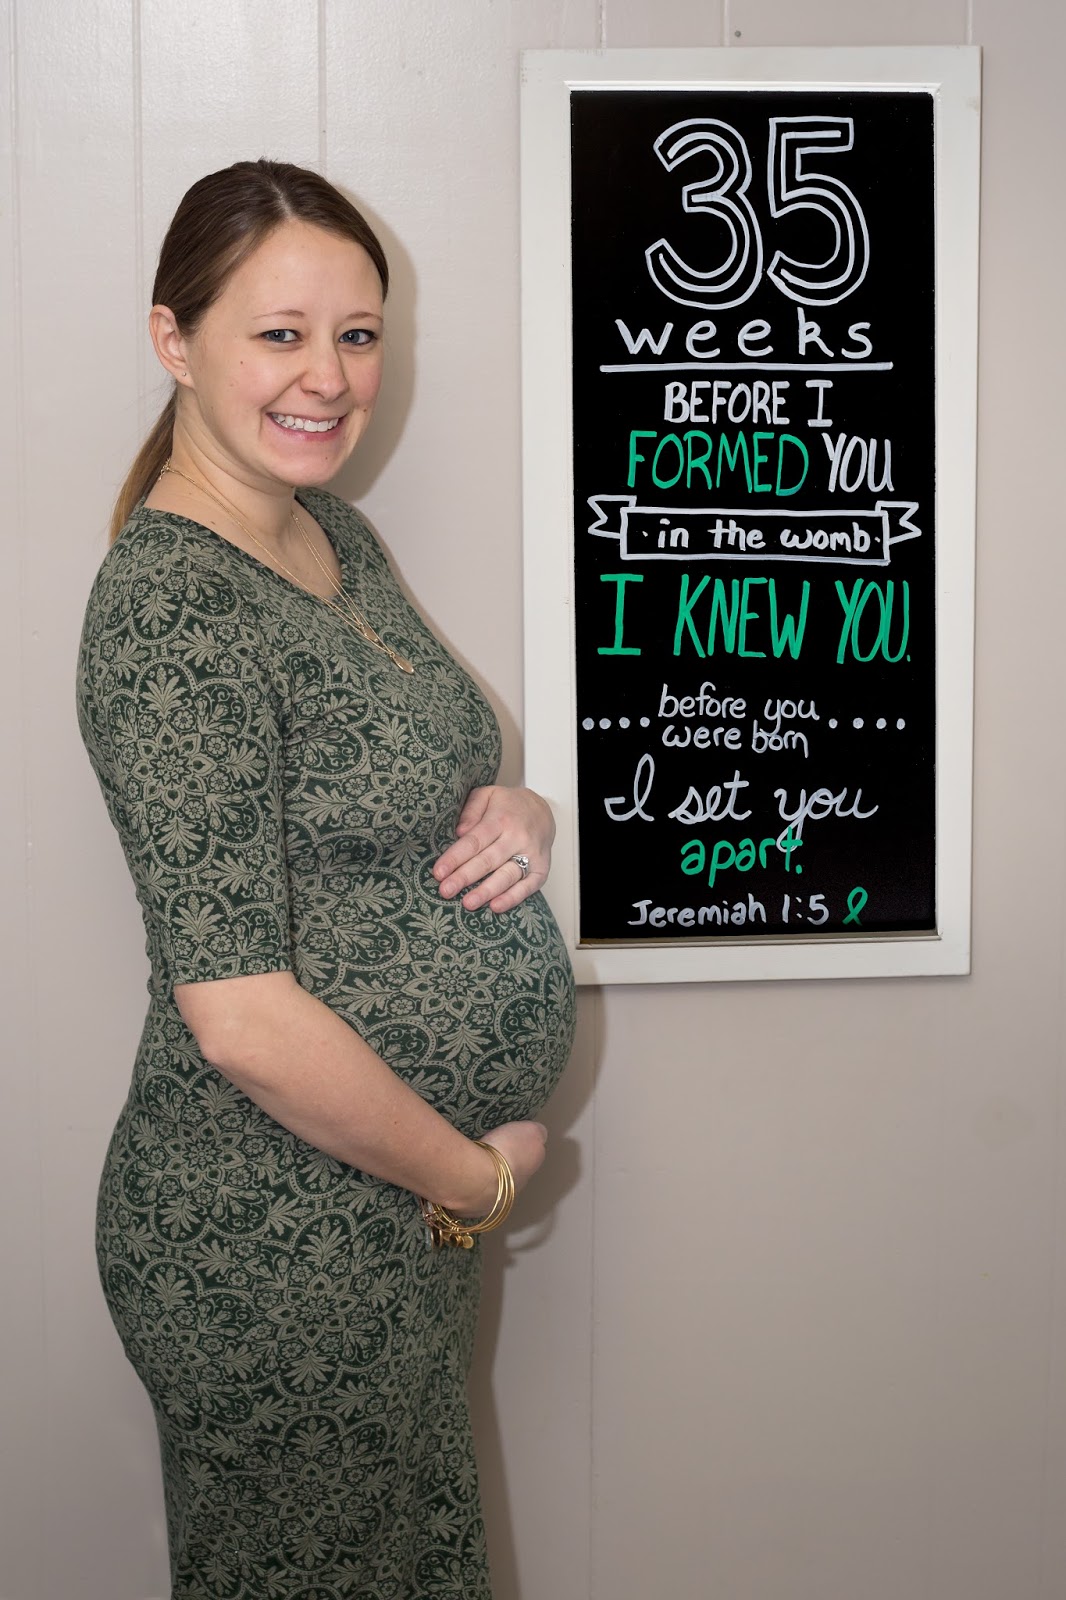 35
weeks
BEFORE I
FORMED YOU
· in the womb ·
I KNEW YOU.
....before you....
were born
I set you
apart.
Jeremiah 1:5